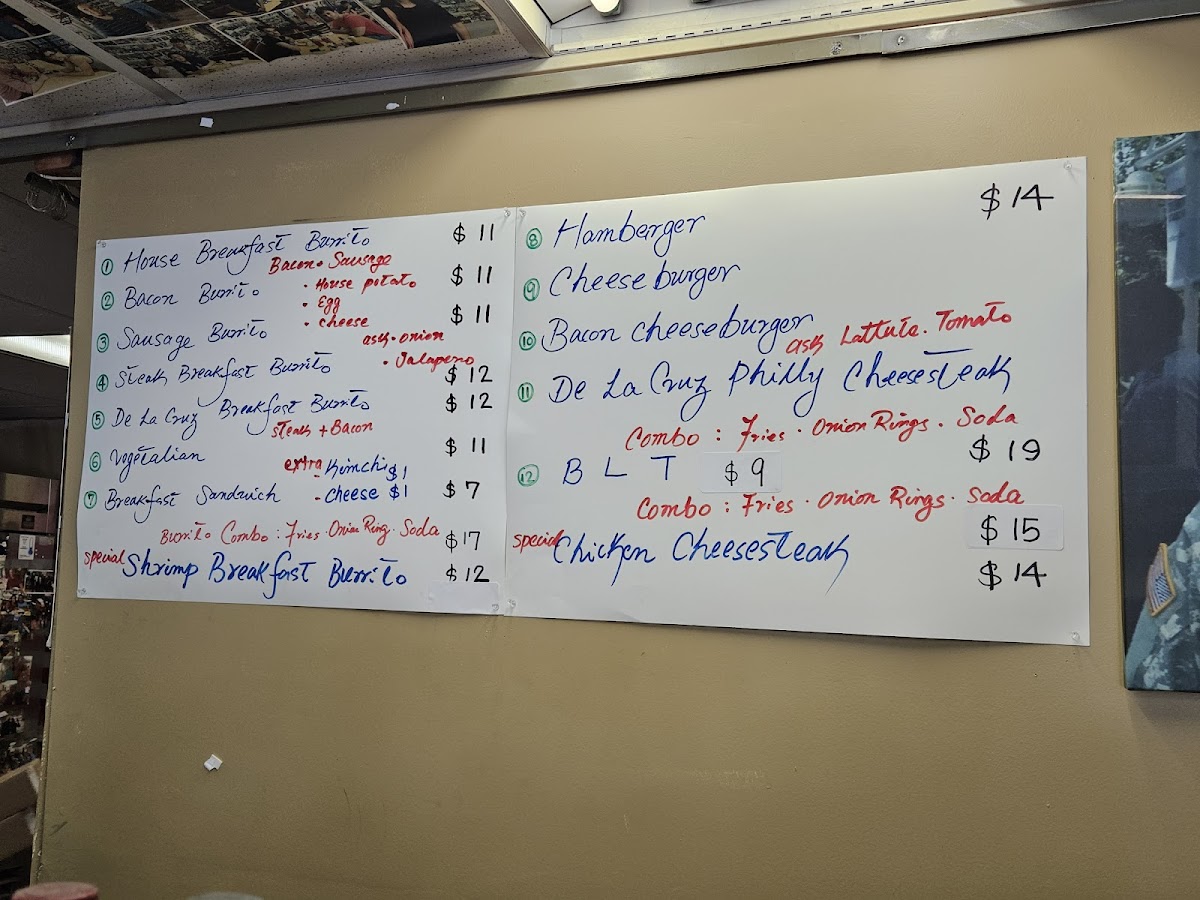 ① House Breakfast Burrito $ 11
Bacon • Sausage
② Bacon Burrito $ 11
• House potato
• Egg
• cheese
③ Sausage Burrito $ 11
ask • onion
• Jalapeno
④ Steak Breakfast Burrito $ 12
⑤ De La Cruz Breakfast Burrito $ 12
steak + Bacon
⑥ Vegetalian $ 11
extra - Kimchi $1
⑦ Breakfast Sandwich - cheese $1 $ 7
Burrito Combo : Fries • Onion Ring • Soda $ 17
special Shrimp Breakfast Burrito $ 12
⑧ Hamberger $ 14
⑨ Cheeseburger
⑩ Bacon cheeseburger
ask Lattute • Tomato
⑪ De La Cruz Philly Cheesesteak
Combo : Fries • Onion Rings • Soda
$ 19
⑫ B L T $ 9
Combo : Fries • Onion Rings • Soda
$ 15
special Chicken Cheesesteak $ 14